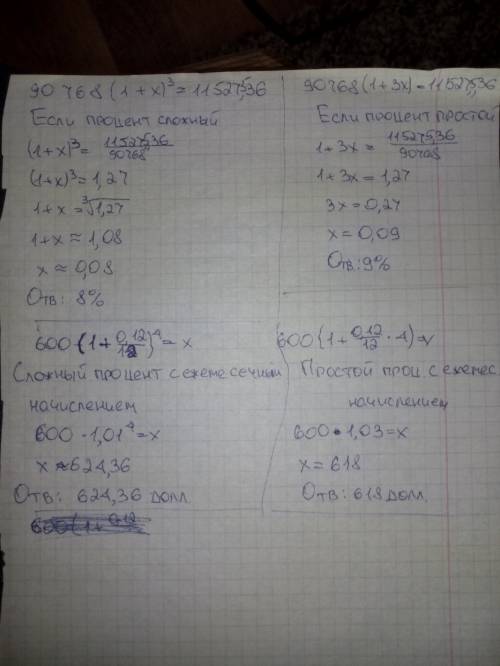 90 768 (1+x)³ = 115275,36
Если процент сложный
(1+x)³ = 115275,36 / 90768
(1+x)³ = 1,27
1+x = ³√1,27
1+x ≈ 1,08
x ≈ 0,08
Отв: 8%
90768 (1+3x) = 115275,36
Если процент простой
1+3x = 115275,36 / 90768
1+3x = 1,27
3x = 0,27
x = 0,09
Отв: 9%
600 (1+ 0,12/12)⁴ = x
Сложный процент с ежемесечным
начислением
600 · 1,01⁴ = x
x ≈ 624,36
Отв: 624,36 долл.
600 (1+ 0,12/12 · 4) = x
Простой проц. с ежемес
начислением
600 · 1,03 = x
x = 618
Отв: 618 долл.